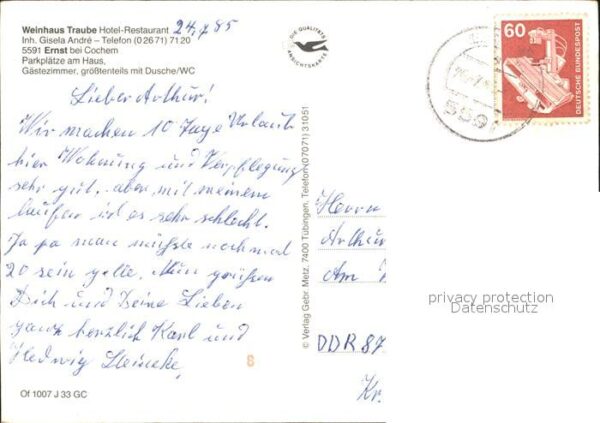 Weinhaus Traube Hotel-Restaurant
Inh. Gisela André – Telefon (0 26 71) 71 20
5591 Ernst bei Cochem
Parkplätze am Haus,
Gästezimmer, größtenteils mit Dusche/WC
24.7.85
DIE QUALITÄTS
ANSICHTSKARTE
60
DEUTSCHE BUNDESPOST
559
Lieber Arthur!
Wir machen 10 Tage Urlaub
hier Wohnung und Verpflegung
sehr gut, aber mit meinem
laufen ist es sehr schlecht.
Ja ja man müsste nochmal
20 sein gelle. Nun grüßen
Dich und Deine Lieben
ganz herzlich Karl und
Hedwig Steineke
© Verlag Gebr. Metz, 7400 Tübingen, Telefon (07071) 31051
Herrn
Arthur
Am
DDR 87
Kr.
privacy protection
Datenschutz
8
Of 1007 J 33 GC